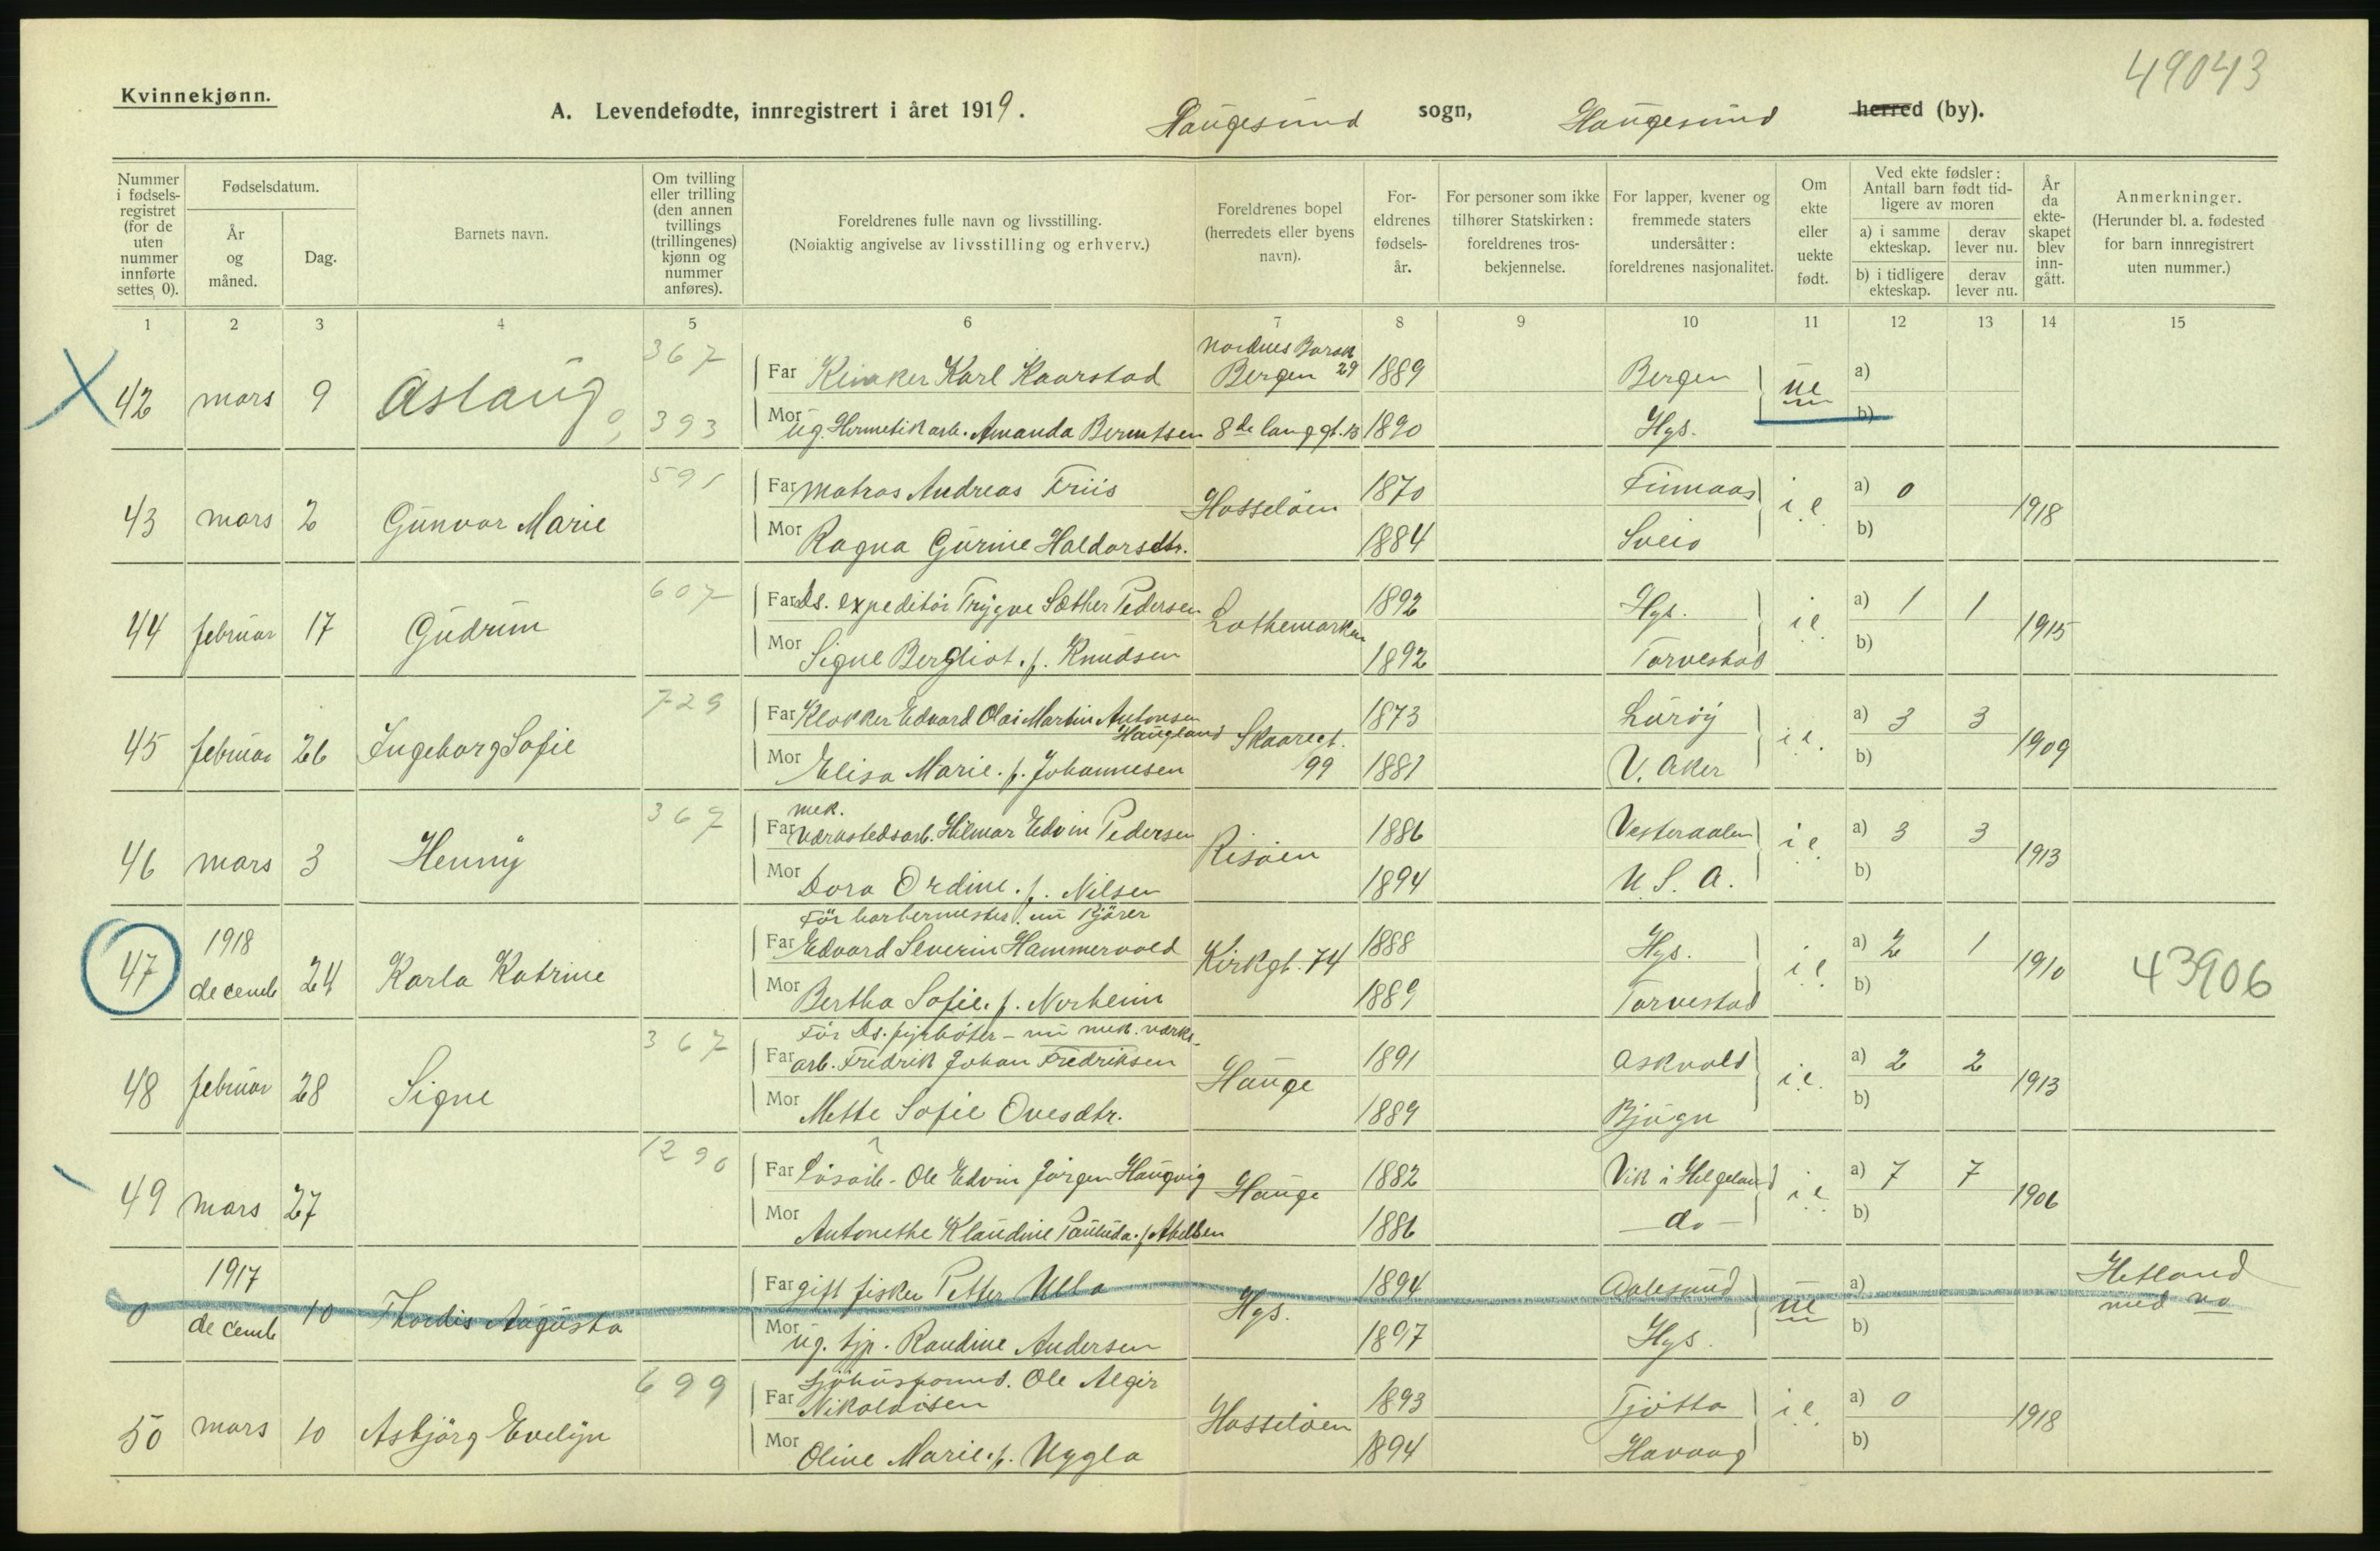 49043
Kvinnekjønn.
A. Levendefødte, innregistrert i året 1919. Haugesund sogn, Haugesund herred (by).
Nummer i fødsels-registret (for de uten nummer innførte settes 0).
Fødselsdatum.
År og måned.
Dag.
Barnets navn.
Om tvilling eller trilling (den annen tvillings (trillingenes) kjønn og nummer anføres).
Foreldrenes fulle navn og livsstilling.
(Nøiaktig angivelse av livsstilling og erhverv.)
Foreldrenes bopel (herredets eller byens navn).
For-eldrenes fødsels-år.
For personer som ikke tilhører Statskirken: foreldrenes tros-bekjennelse.
For lapper, kvener og fremmede staters undersåtter: foreldrenes nasjonalitet.
Om ekte eller uekte født.
Ved ekte fødsler: Antall barn født tid-ligere av moren
a) i samme ekteskap.
derav lever nu.
b) i tidligere ekteskap.
derav lever nu.
År da ekte-skapet blev inn-gått.
Anmerkninger.
(Herunder bl. a. fødested for barn innregistrert uten nummer.)
1 2 3 4 5 6 7 8 9 10 11 12 13 14 15
367 Nordnes Barak
42 mars 9 Aslaug Far Klinker Karl Kaarstad Bergen 29 1889 Bergen ue a)
393 Mor ug. Hermetikarb. Amanda Berntsen 8de langgt. 13 1890 Hgs. b)
591 Far Matros Andreas Friis 1870 Finnaas a) 0
43 mars 2 Gunvor Marie Hasseløen i.e. 1918
Mor Ragna Gurine Haldorsdtr. 1884 Sveio b)
607 Far Ds. expeditör Trygve Sæther Pedersen 1892 Hgs. a) 1 1
44 februar 17 Gudrun Lothemarken i.e. 1915
Mor Signe Bergliot. f. Knudsen 1892 Torvestad b)
729 Far Klokker Edvard Olai Martin Antonsen Haugland 1873 Luröy a) 3 3
45 februar 26 Ingeborg Sofie Skaaregt. 99 i.e. 1909
Mor Elisa Marie. f. Johannesen 1881 V. Aker b)
367 mek.
Far værkstedsarb. Hilmar Edvin Pedersen 1886 Vesteraalen a) 3 3
46 mars 3 Henny Risöen i.e. 1913
Mor Dora Ordine. f. Nilsen 1894 U.S.A. b)
För barbermester. nu Kjörer
1918 Far Edvard Severin Hammervold 1888 Hgs. a) 2 1
47 decemb 24 Karla Katrine Kirkgt. 74 i.e. 1910 43906
Mor Bertha Sofie. f. Norheim 1889 Torvestad b)
367 För Ds. fyrböter - nu mek. værks-
Far arb. Fredrik Johan Fredriksen 1891 Askvold a) 2 2
48 februar 28 Signe Hauge i.e. 1913
Mor Mette Sofie Ovesdtr. 1889 Bjugn b)
1290 ?
Far Lösarb - Ole Edvin Jörgen Haugvig 1882 Vik i Helgeland a) 7 7
49 mars 27 Hauge i.e. 1906
Mor Antonethe Klaudine f. Abelsen 1886 - do - b)
1917 Far gift fisker Petter Ulla 1894 Aalesund a) Hetland
0 decemb 10 Thordis Augusta Hgs. ue med no
Mor ug. tjp. Randine Andersen 1897 Hgs. b)
699 Sjöhusformd. Ole Algir
Far Nikolaisen 1893 Tjötta a) 0
50 mars 10 Asbjörg Evelyn Hasseløen i.e. 1918
Mor Oline Marie. f. Uggla 1894 Havaag b)